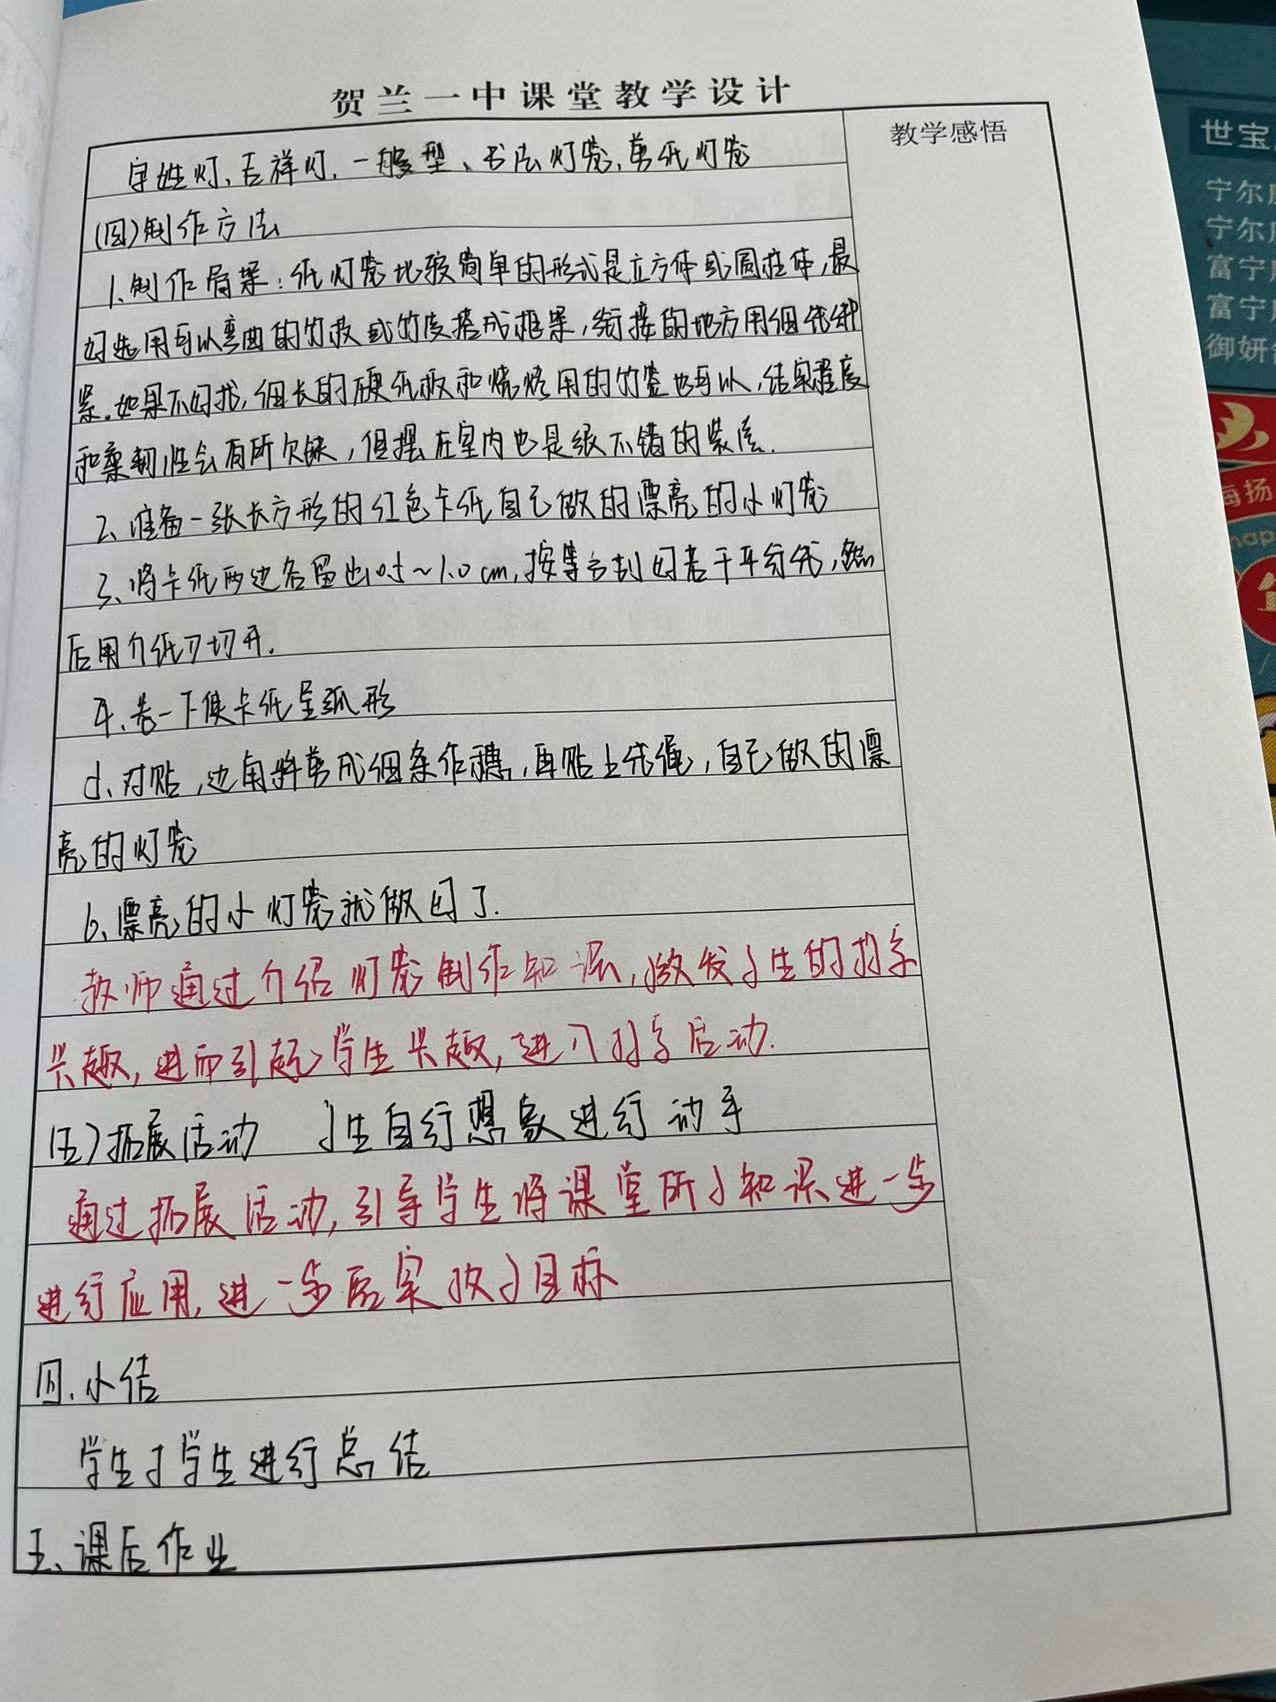 贺兰一中课堂教学设计
教学感悟
字姓灯、吉祥灯、一般型、书法灯笼、剪纸灯笼
(四)制作方法
1、制作骨架：纸灯笼比较简单的形式是立方体或圆柱体，最
好选用可以弯曲的竹枝或竹皮搭成框架，衔接的地方用细线绑
紧。如果不好找，细长的硬纸板和烧烤用的竹签也可以，结实程度
和柔韧性会有所欠缺，但摆在室内也是很不错的装饰.
2、准备一张长方形的红色卡纸自己做的漂亮的小灯笼
3、将卡纸两边各留出0.5~1.0cm，按等分刻好若干平行线，然
后用介纸刀切开.
4、卷一下使卡纸呈弧形
5、对贴，边角料剪成细条作穗，再贴上线绳，自己做的漂
亮的灯笼
6、漂亮的小灯笼就做好了.
教师通过介绍灯笼制作知识，激发学生的动手
兴趣，进而引起学生兴趣，进入动手活动.
(五)拓展活动 学生自行想象进行动手
通过拓展活动，引导学生将课堂所学知识进一步
进行应用，进一步落实教学目标
四、小结
学生对学生进行总结
五、课后作业
世宝
宁尔
宁尔
富宁
富宁
御妍
海扬